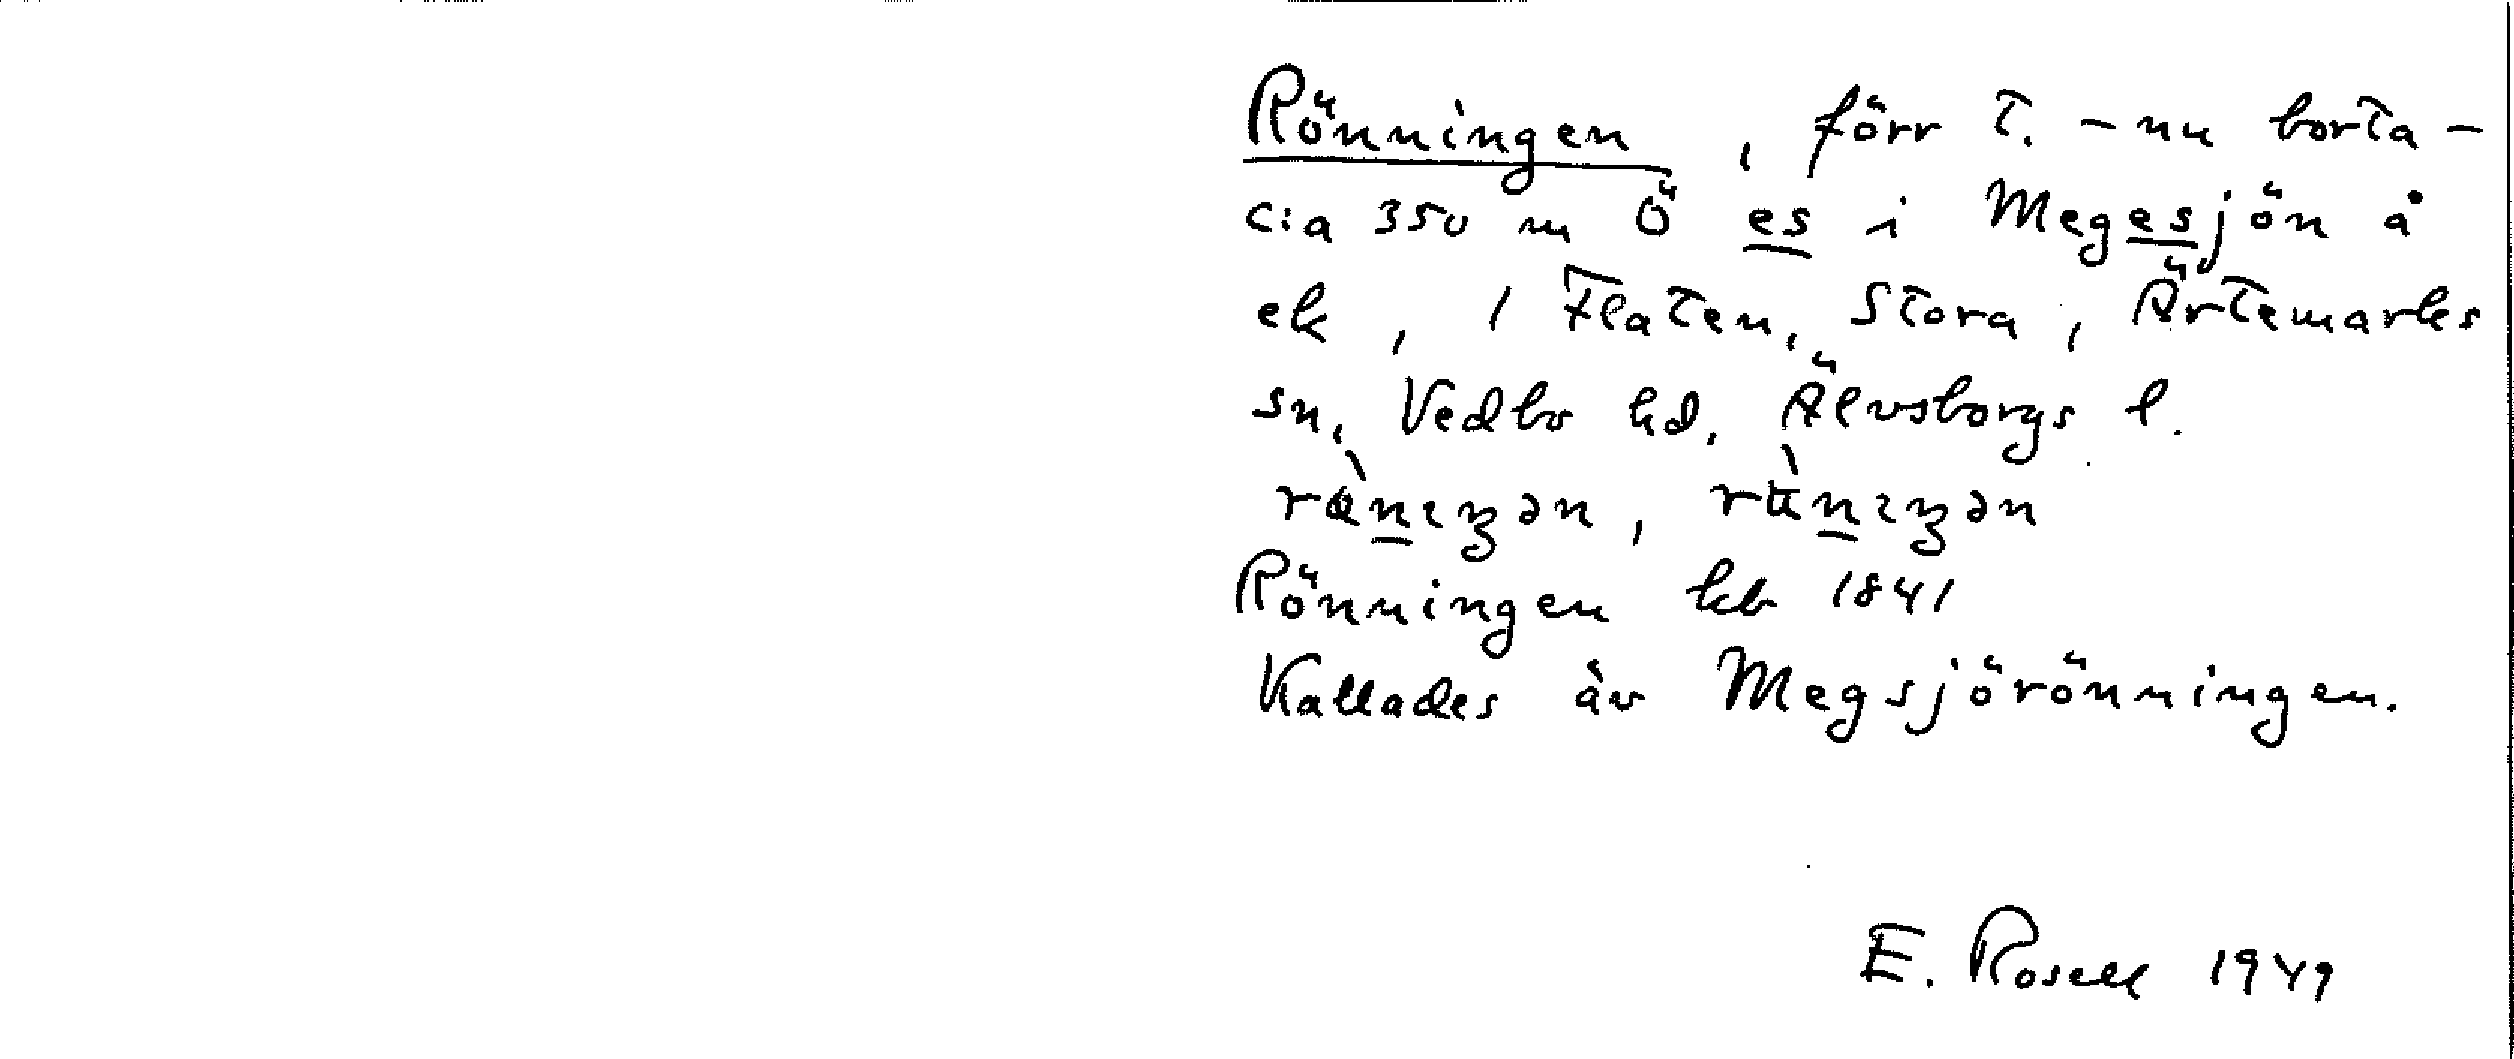 Rönningen, förr t. - nu borta -
c:a 350 m Ö es i Megesjön å
ek, 1 Flaten, Stora, Ärtemarks
sn, Vedbo hd, Älvsborgs l.
Rönningen kb 1841
Kallades äv Megsjörönningen.
E. Rosell 1949